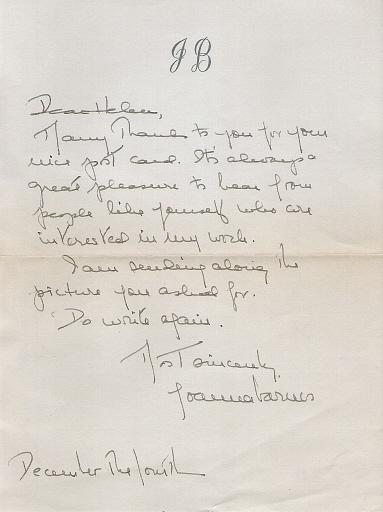 JB
Dear Helen,
Many Thanks to you for your
nice post card. It's always a
great pleasure to hear from
people like yourself who are
interested in my work.
I am sending along the
picture you asked for.
Do write again.
Most sincerely,
Joanna Barnes
December the fourth